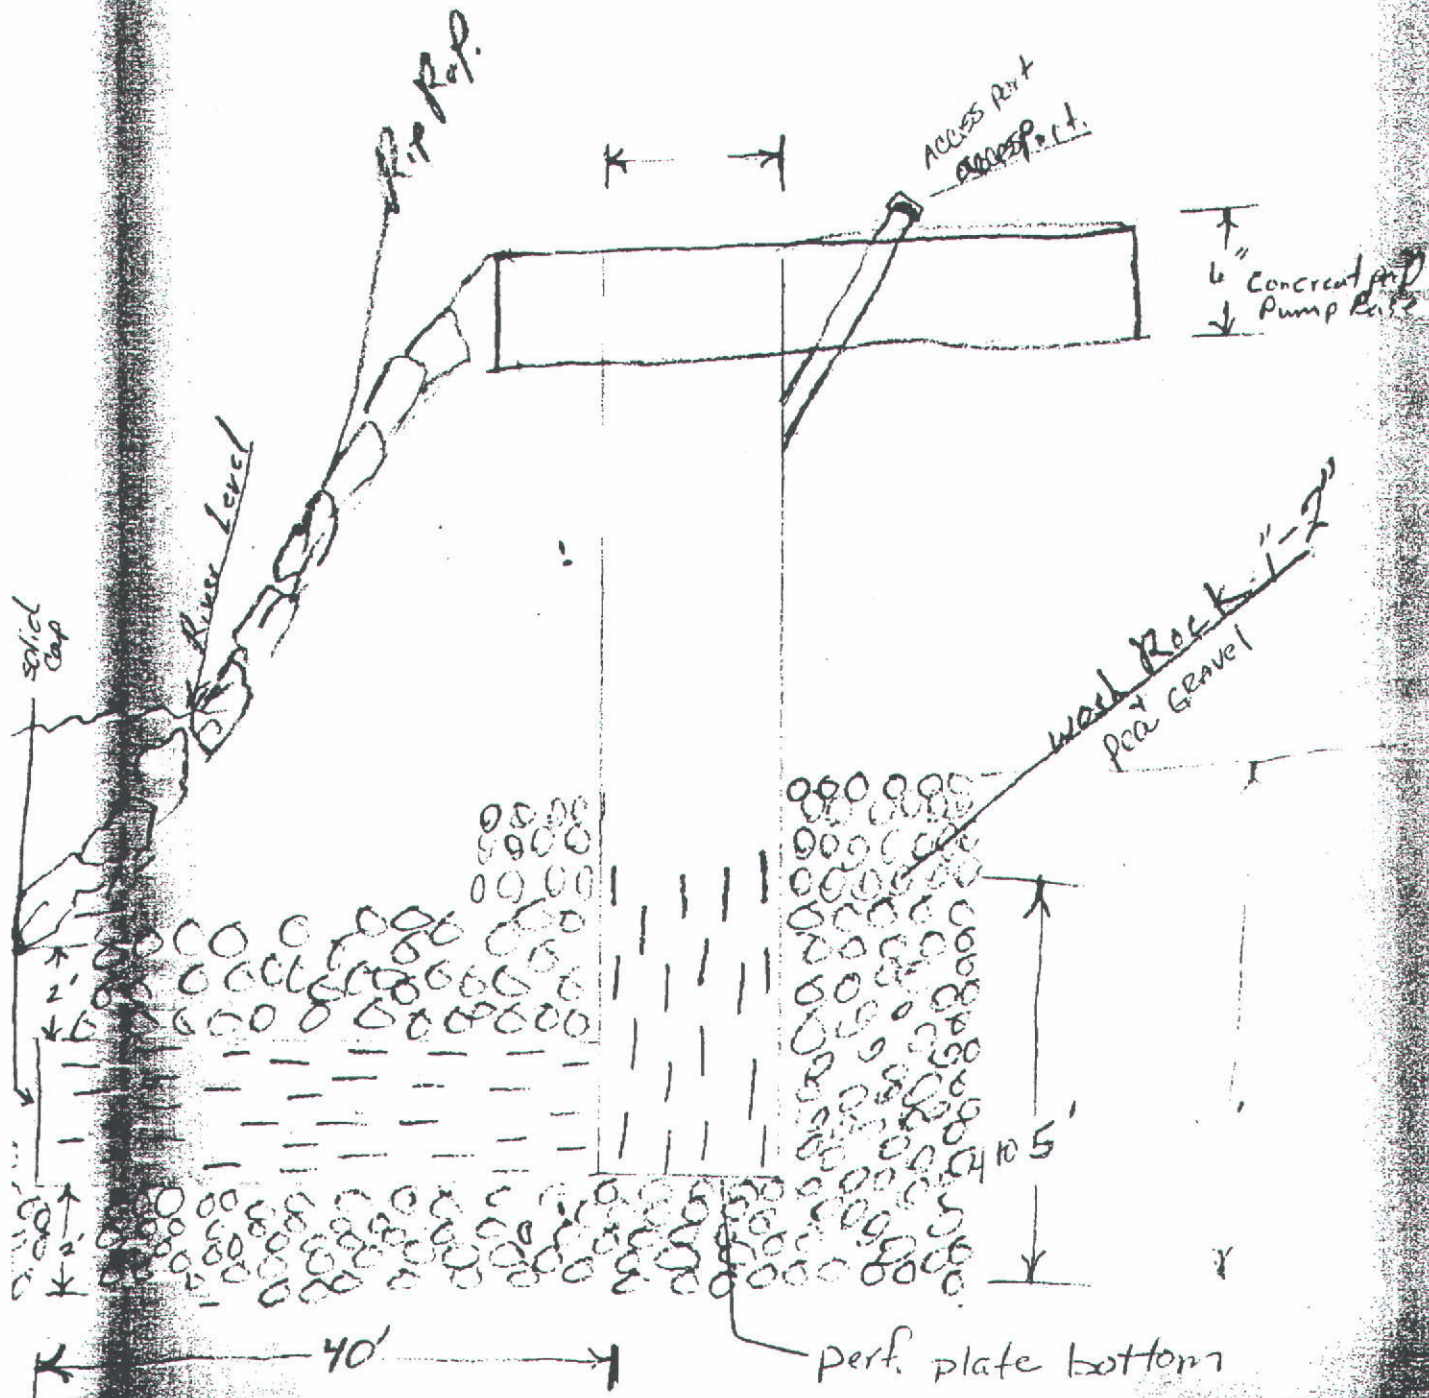 Rip Rap.
ACCESS Port
accesport.
6"
Concreat pad
Pump Base
River Level
solid
cap
Wash Rock 1"-2"
+
pea GRAVEl
2'
4 to 5'
2'
40'
perf. plate bottom